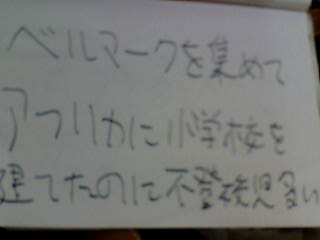 ベルマークを集めて
アフリカに小学校を
建てたのに不登校児多い